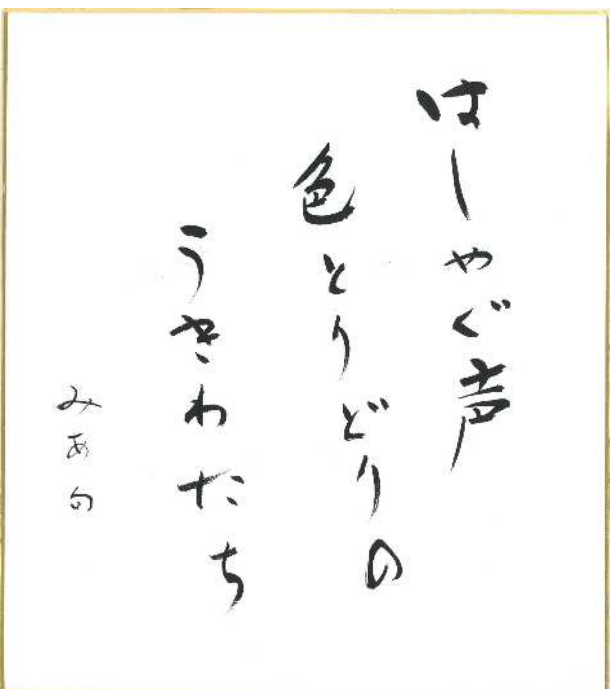 はしゃぐ声
色とりどりの
うきわたち
みあ句